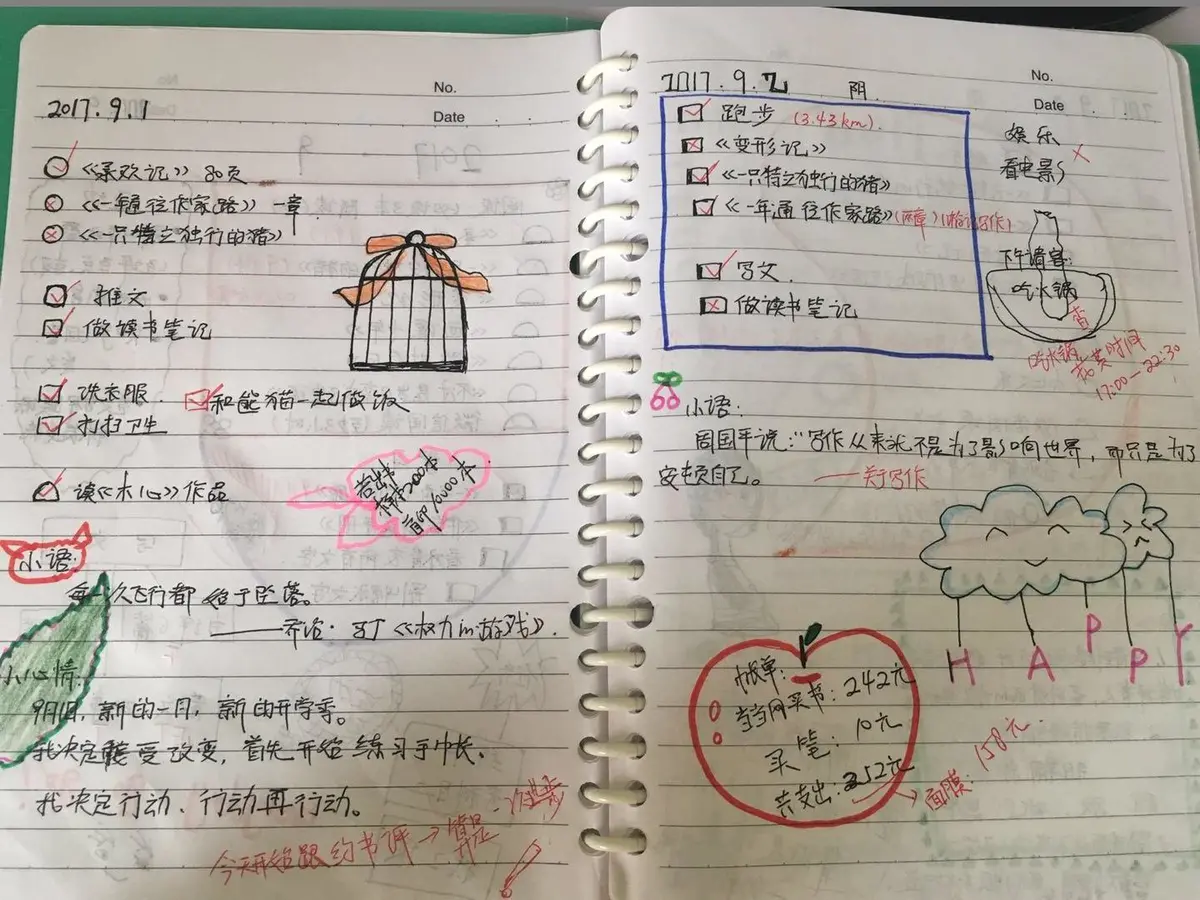 No.
2017.9.1
Date
《承欢记》 80页
《一年通往作家路》 一章
《一只特立独行的猪》
推文
做读书笔记
洗衣服
和能猫一起做饭
扫扫卫生
读《木心》作品
若出书
样书2000本
首印10000本
小语:
每一次飞行都始于坠落。
——乔治·马丁《权力的游戏》.
小心情:
9月1日,新的一月,新的开学季。
我决定接受改变,首先开始练习手中长.
我决定行动、行动再行动。
今天开始跟约书评→算是一次进步
2017.9.2 阴
No.
Date
跑步 (3.43km).
《变形记》
《一只特立独行的猪》
《一年通往作家路》(两章)
写文.
做读书笔记
娱乐
看电影
下午请客:
吃火锅
香
吃火锅
花费时间
17:00—22:30
小语:
周国平说:“写作从来就不是为了影响世界,而只是为了
安顿自己。 ——关于写作
HAPPY
小账单:
当当网买书:242元
买笔:10元
共支出:252元
面膜:158元.